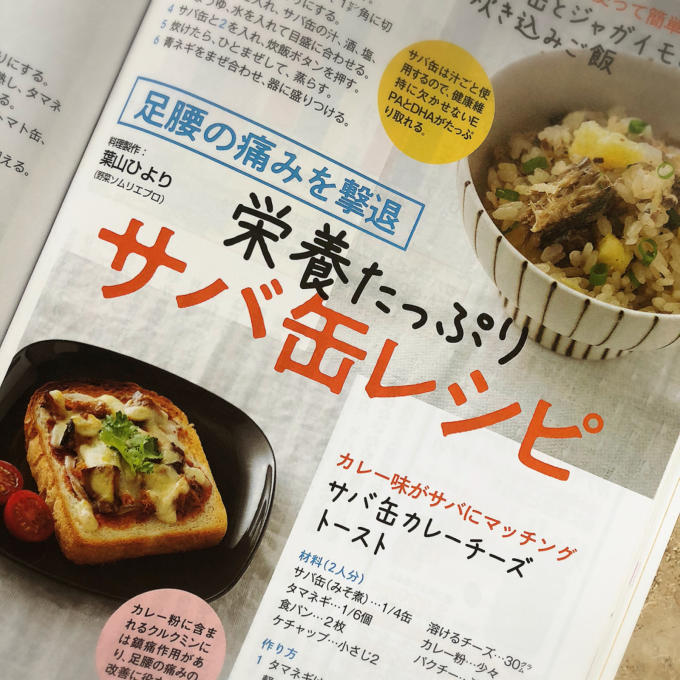 、1㌢角に切
りにする。
4 サバ缶と2を入れ、炊飯ボタンを押す。
5 炊けたら、ひとまぜして、蒸らす。
6 青ネギをまぜ合わせ、器に盛りつける。
うゆ、水を入れて目盛に合わせる。
入れ、サバ缶の汁、酒、塩、
りにする。
熱し、タマネ
る。
トマト缶、
える。
サバ缶は汁ごと使
用するので、健康維
持に欠かせないE
PAとDHAがたっぷ
り取れる。
って簡単
缶とジャガイモ
炊き込みご飯
足腰の痛みを撃退
料理製作：
葉山ひより
(野菜ソムリエプロ)
栄養たっぷり
サバ缶レシピ
カレー味がサバにマッチング
サバ缶カレーチーズ
トースト
材料(2人分)
サバ缶(みそ煮)…1/4缶
タマネギ…1/6個
食パン…2枚
ケチャップ…小さじ2
溶けるチーズ…30㌘
カレー粉…少々
パクチー…
作り方
1 タマネギは
カレー粉に含ま
れるクルクミンに
は鎮痛作用があ
り、足腰の痛みの
改善に役